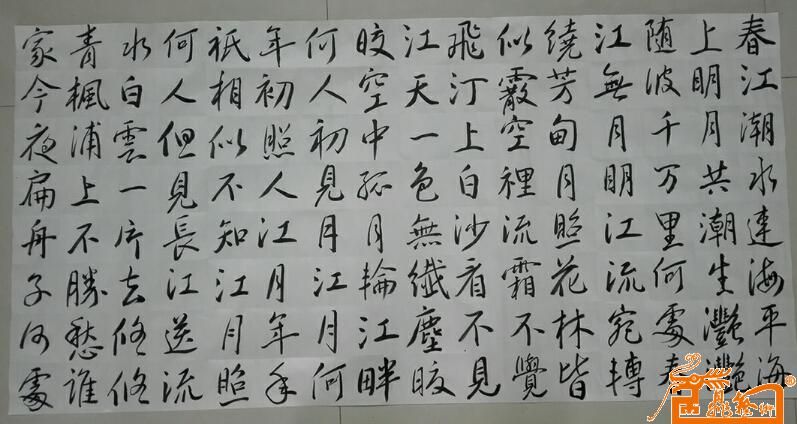 春江潮水連海平海
上明月共潮生灩灩
随波千万里何處春
江無月明江流宛轉
繞芳甸月照花林皆
似霰空裡流霜不覺
飛汀上白沙看不見
江天一色無纖塵皎
皎空中孤月輪江畔
何人初見月江月何
年初照人江月年年
祇相似不知江月照
何人但見長江送流
水白雲一片去悠悠
青楓浦上不勝愁誰
家今夜扁舟子何處